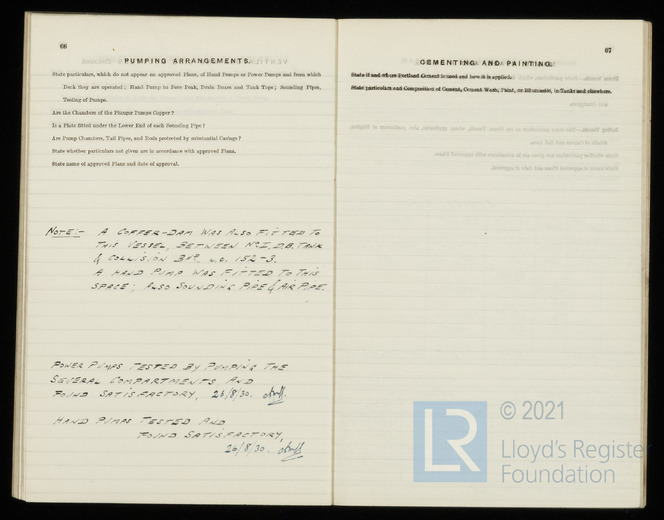 66
PUMPING ARRANGEMENTS.
State particulars, which do not appear on approved Plans, of Hand Pumps or Power Pumps and from which
Deck they are operated; Hand Pump to Fore Peak, Drain Boxes and Tank Tops; Sounding Pipes,
Testing of Pumps.
Are the Chambers of the Plunger Pumps Copper?
Is a Plate fitted under the Lower End of each Sounding Pipe?
Are Pump Chambers, Tail Pipes, and Rods protected by substantial Casings?
State whether particulars not given are in accordance with approved Plans.
State name of approved Plans and date of approval.
NOTE:- A COFFER-DAM WAS ALSO FITTED TO
THIS VESSEL, BETWEEN No I, D.B. TANK
& COLLISION BHD. i.e. 152-3.
A HAND PUMP WAS FITTED TO THIS
SPACE; ALSO SOUNDING PIPE & AIR PIPE.
POWER PUMPS TESTED BY PUMPING THE
SEVERAL COMPARTMENTS AND
FOUND SATISFACTORY, 26/8/30.
HAND PUMPS TESTED AND
FOUND SATISFACTORY,
26/8/30.
67
CEMENTING AND PAINTING.
State if and where Portland Cement is used and how it is applied.
State particulars and Composition of Cement, Cement Wash, Paint, or Bitumastic, in Tanks and elsewhere.
LR
© 2021
Lloyd's Register
Foundation